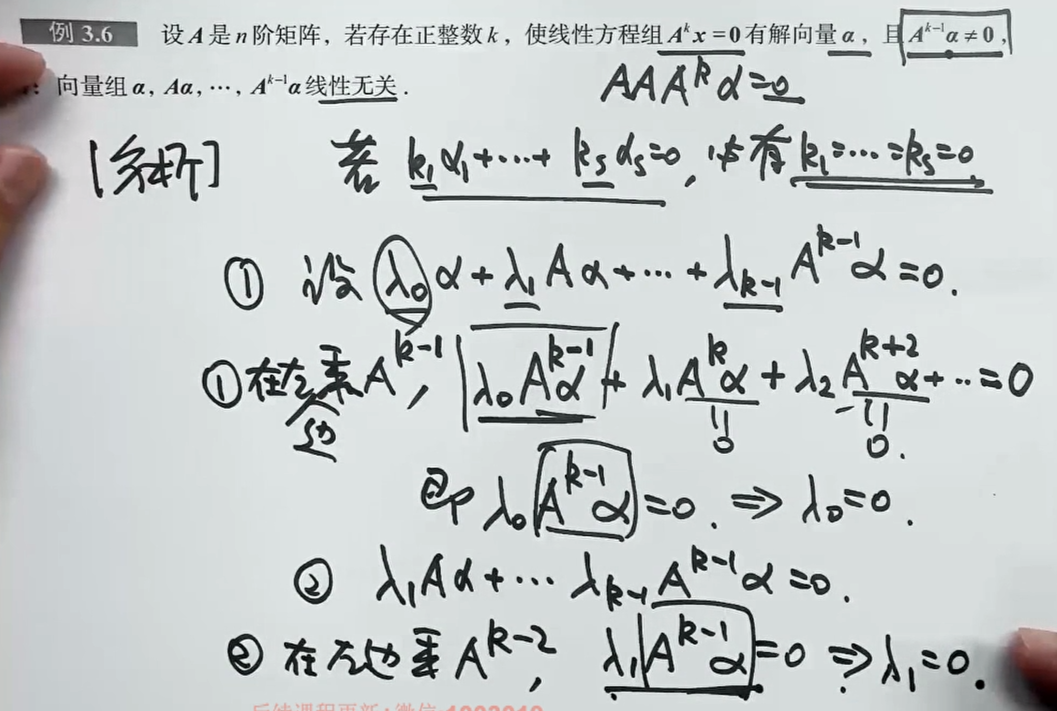 例 3.6 设A是n阶矩阵，若存在正整数k，使线性方程组Aᵏx=0有解向量α，且Aᵏ⁻¹α≠0，
：向量组α，Aα，⋯，Aᵏ⁻¹α线性无关．
AAAᵏα=0
[分析] 若 k₁α₁+⋯+kₛαₛ=0，必有k₁=⋯=kₛ=0
① 设 λ₀α+λ₁Aα+⋯+λₖ₋₁Aᵏ⁻¹α=0．
①在左边乘Aᵏ⁻¹，λ₀Aᵏ⁻¹α+λ₁Aᵏα+λ₂Aᵏ⁺²α+⋯=0
0 0．
即 λ₀Aᵏ⁻¹α=0．⇒λ₀=0．
② λ₁Aα+⋯λₖ₋₁Aᵏ⁻¹α=0．
②在左边乘Aᵏ⁻²，λ₁Aᵏ⁻¹α=0⇒λ₁=0．